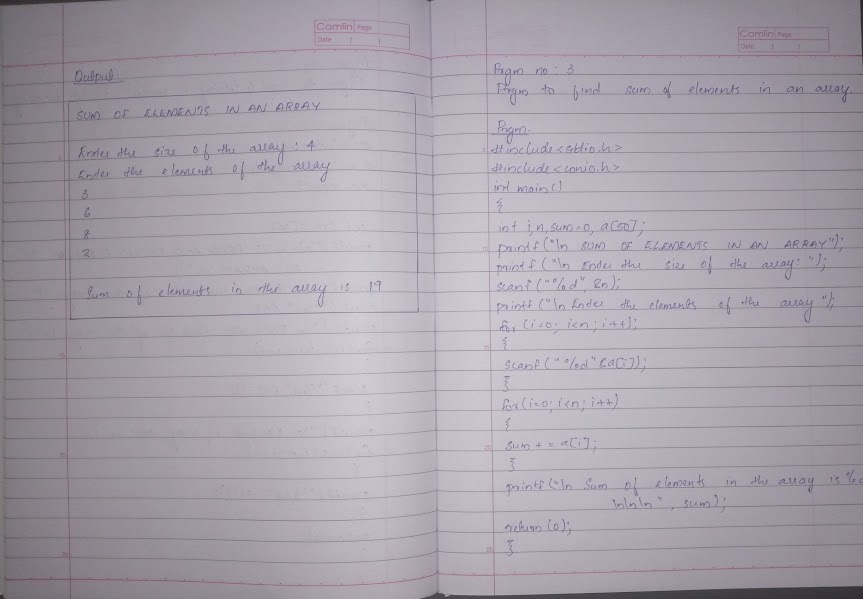 Camlin Page
Date / /
Output:
SUM OF ELEMENTS IN AN ARRAY
Enter the size of the array : 4
Enter the elements of the array
3
6
8
2
Sum of elements in the array is 19
Camlin Page
Date / /
Prgm no : 3
Prgm to find sum of elements in an array
Prgm.
#include<stdio.h>
#include<conio.h>
int main()
{
int i,n,sum=0, a[50];
printf("\n SUM OF ELEMENTS IN AN ARRAY");
printf ("\n Enter the size of the array: ");
scanf ("%d", &n);
printf ("\n Enter the elements of the array ");
for (i=0; i<n; i++);
{
scanf ("%d" &a[i]);
}
for(i=0; i<n; i++)
{
sum + = a[i];
}
printf ("\n Sum of elements in the array is %d
\n\n\n", sum);
return (0);
}